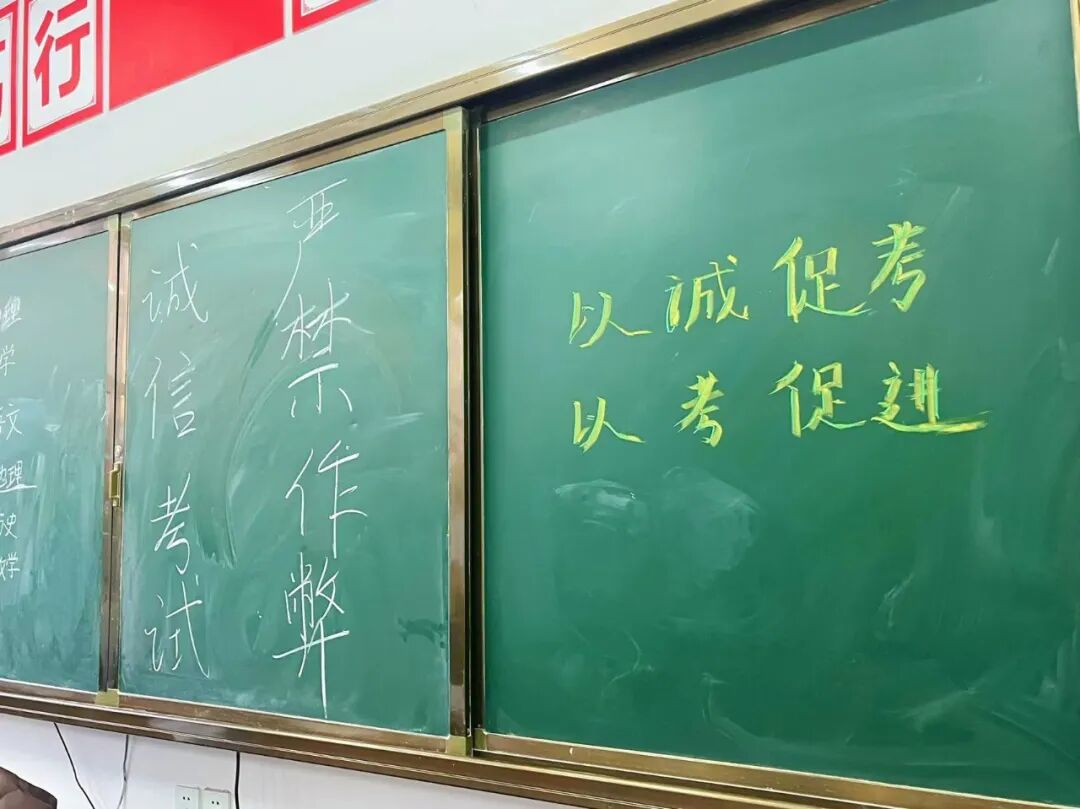 行
理
学
文
地理
史
数学
诚信考试
严禁作弊
以诚促考
以考促进